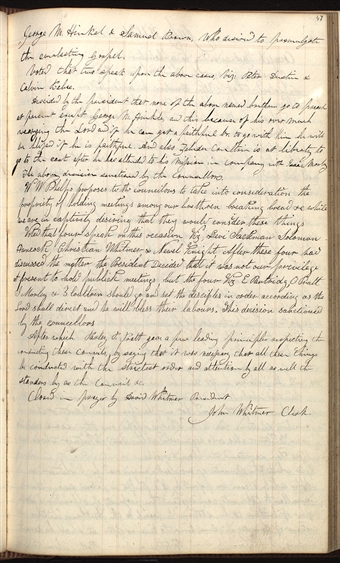 47
George M Hinkel & Samuel Brown, Who desired to promulgate
the everlasting Gospel.
Voted that two speak upon the above cases Viz: Peter Dustin &
Calvin Bebee.
Decided by the president that none of the above named brethren go to preach
at present except George M. Hinkle and this because of his over much
and if he can get a faithful br. to go with him he will
be blessed if he is faithful. And also Zebidee Coultrin is at liberty to
go to the east after he has attended to his mission in company with Isaac Morley
The above decision sanctioned by the Councillors.
W W Phelps proposes to the councilors to take into consideration the
propriety of holding meetings among our brethren breaking bread &c while
we are in captivity desiring that they would consider these things
We that four speak on this occasion Viz Levi Jackman Solomon
Hancock, Christian Whitmer & Newel Knight, After these four had
discussed the matter the President Decided that it was not our privilege
at present to hold publick meetings but the four Viz E Partridge P Pratt
I Morley & Z Coultrin should go and set the disciples in order according as the
Lord shall direct and he will bless their labours. This decision sanctioned
by the councillors
After which Parley P. Pratt gave a few leading principles respecting the
these councils, by saying that it was necessary that all these things
be conducted with the strictest order and attention by all as well the
standers by as the Council &c.
Closed in prayer by David Whitmer President
John Whitmer Clerk